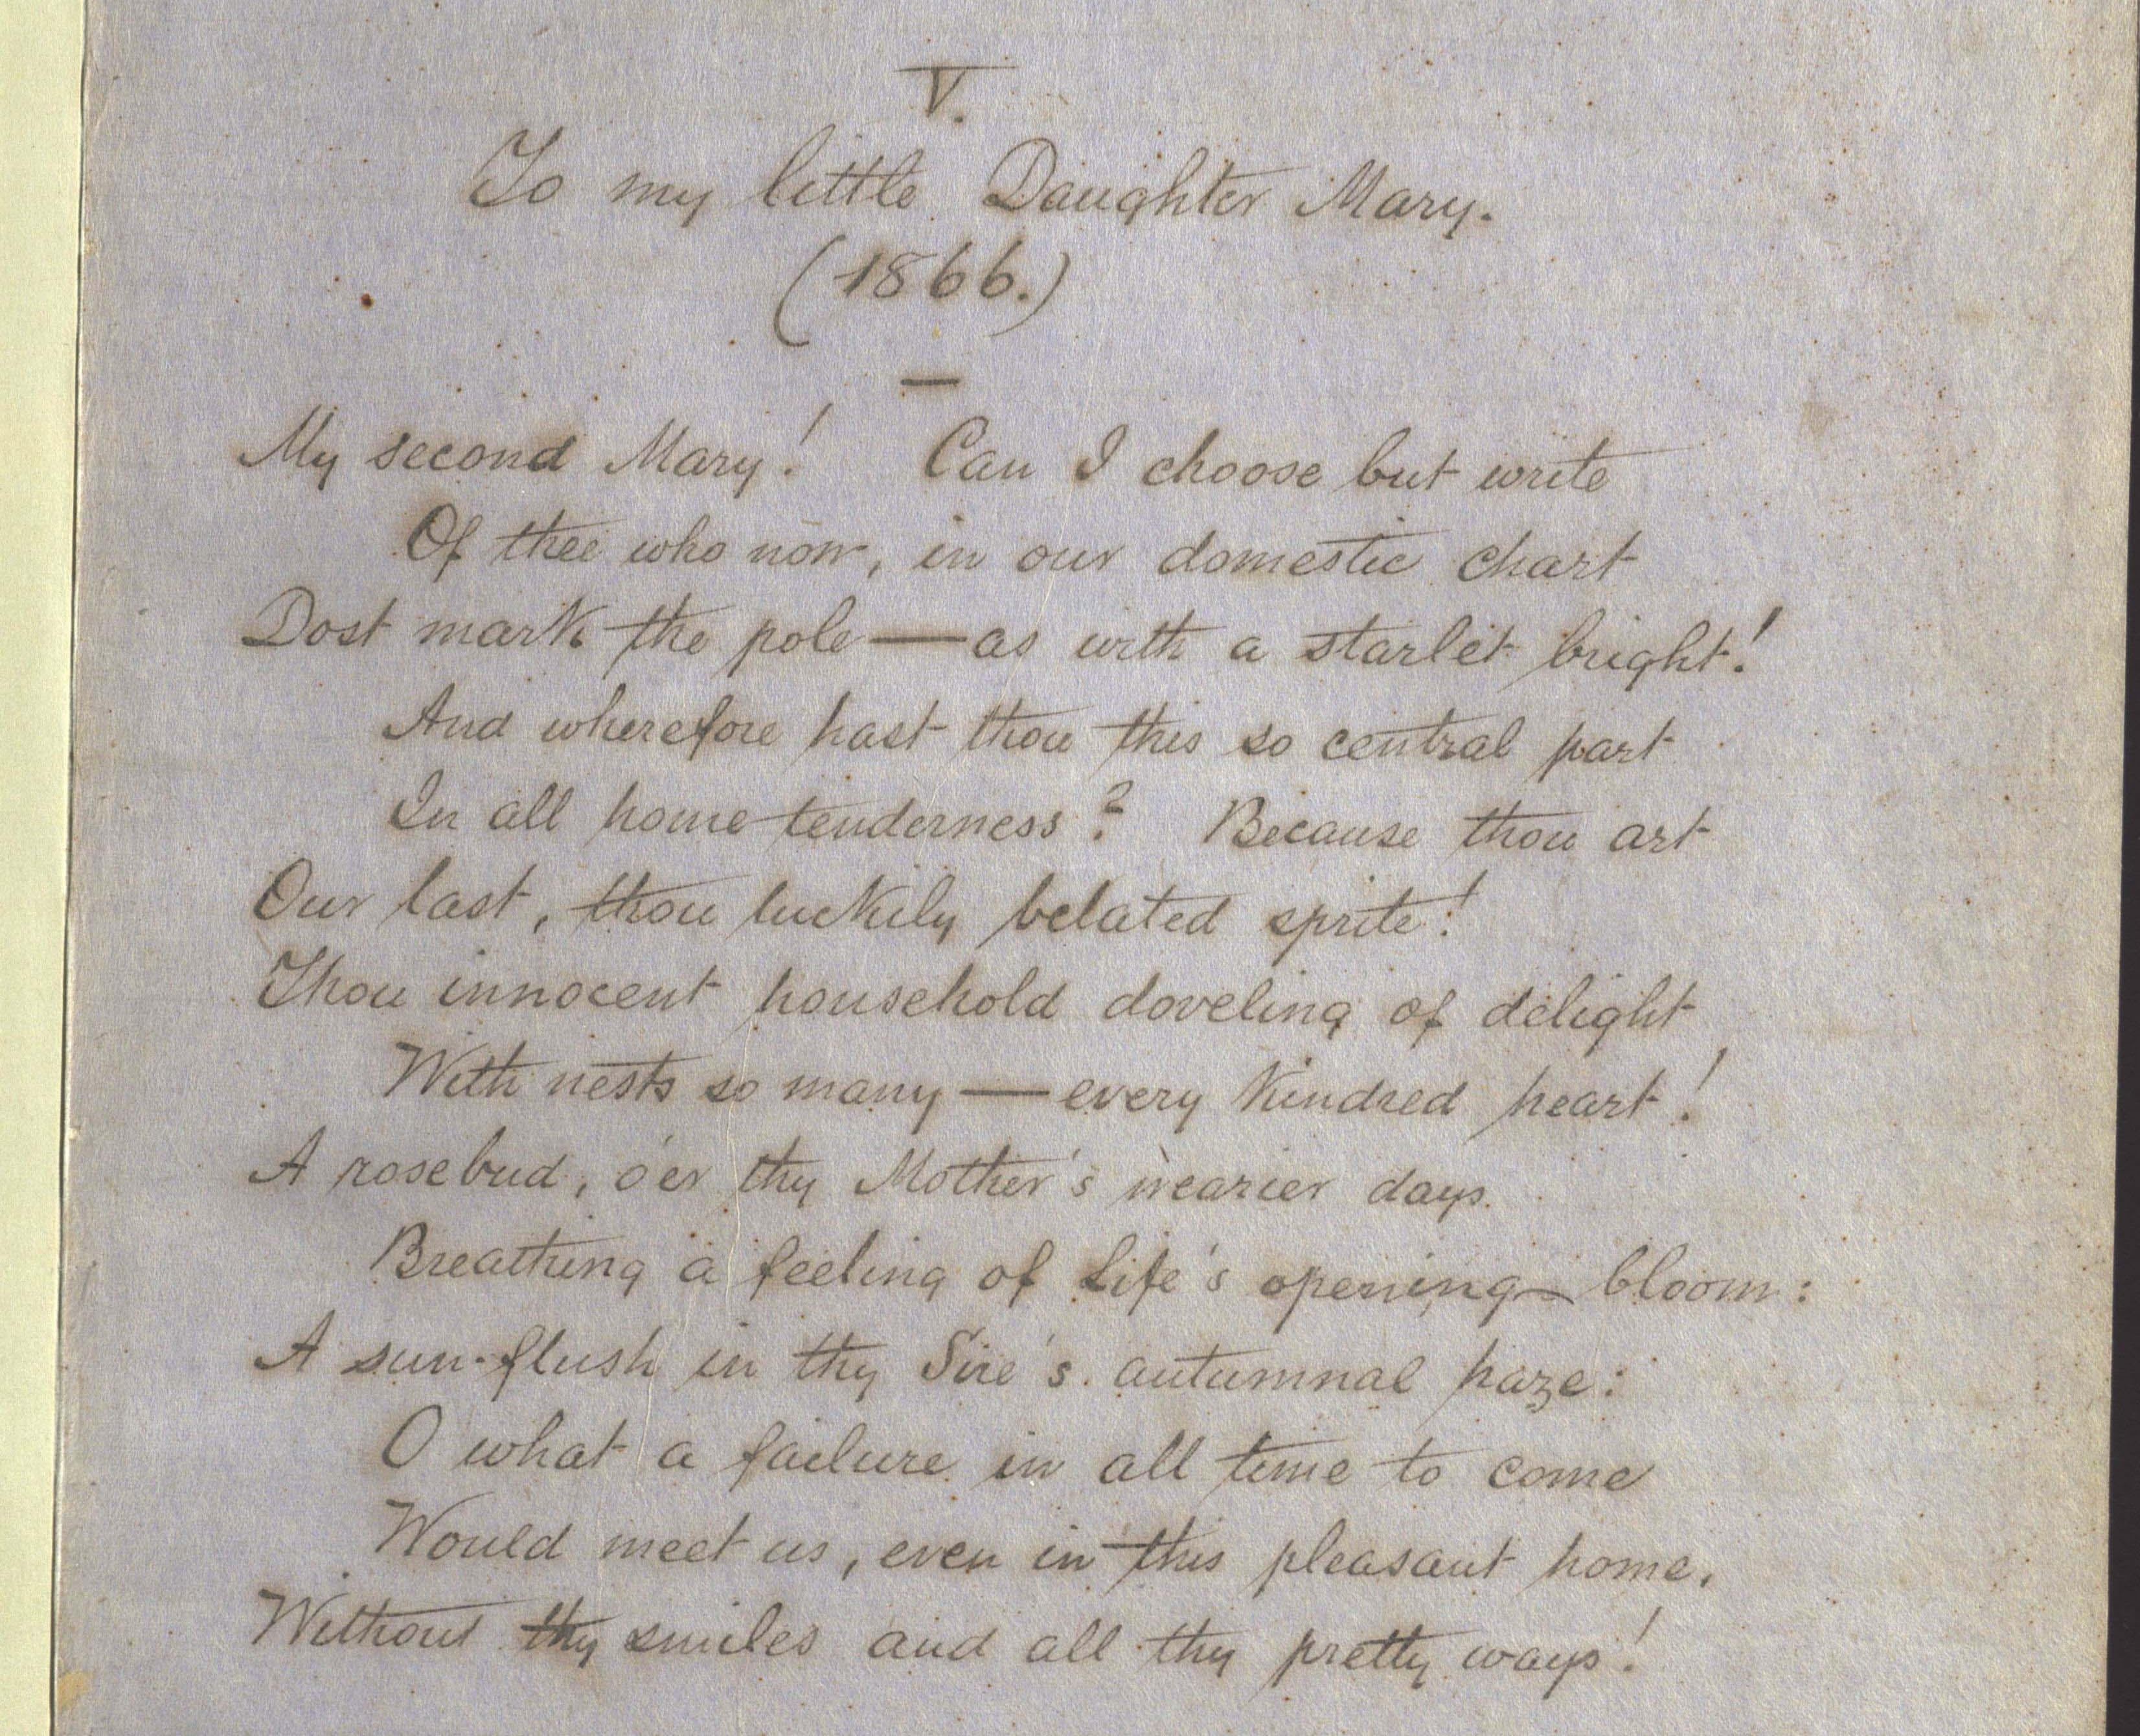 V.
To my little Daughter Mary.
(1866.)
—
My second Mary! Can I choose but write
Of thee who now, in our domestic chart
Dost mark the pole — as with a starlet bright!
And wherefore hast thou this so central part
In all home tenderness? Because thou art
Our last, thou luckily belated sprite!
Thou innocent household doveling of delight
With nests so many — every kindred heart!
A rosebud, o'er thy Mother's wearier days.
Breathing a feeling of Life's opening bloom:
A sun-flush in thy Sire's autumnal haze:
O what a failure in all time to come
Would meet us, even in this pleasant home,
Without thy smiles and all thy pretty ways!